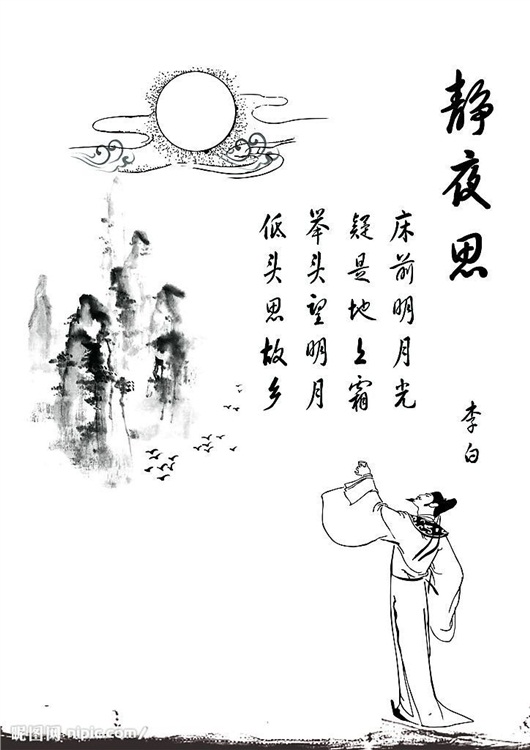 静夜思
李白
床前明月光
疑是地上霜
举头望明月
低头思故乡
昵图网 nipic.com/